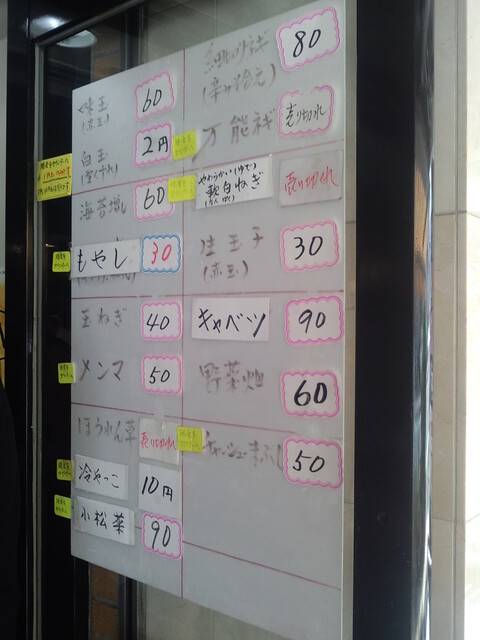 味玉 60
(赤玉)
白玉 2円
海苔増し 60
もやし 30
玉ねぎ 40
メンマ 50
ほうれん草 売り切れ
冷やっこ 10円
小松菜 90
80
万能ねぎ 売り切れ
やわらかい(ゆで)
軟白ねぎ 売り切れ
(なんぱく)
生玉子 30
(赤玉)
キャベツ 90
野菜畑 60
チャーシューまぶし 50